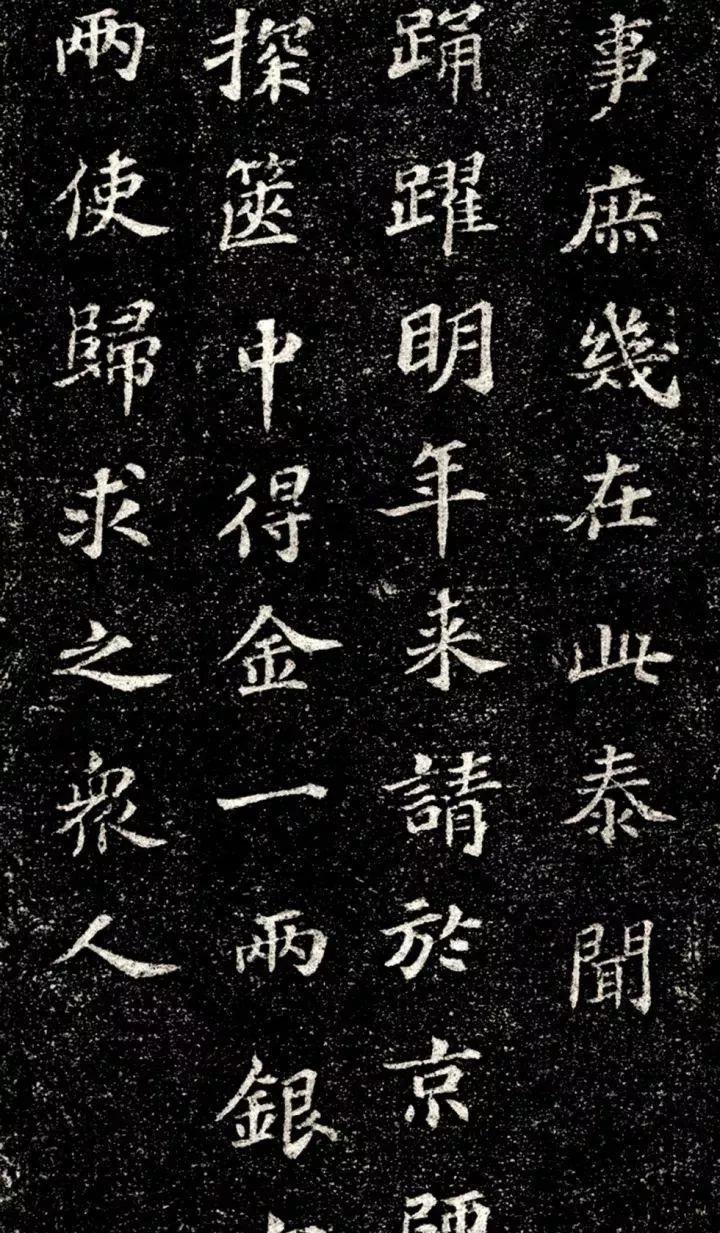 事庶幾在此泰聞
踊躍明年来請於京師
探篋中得金一兩銀
兩使歸求之眾人